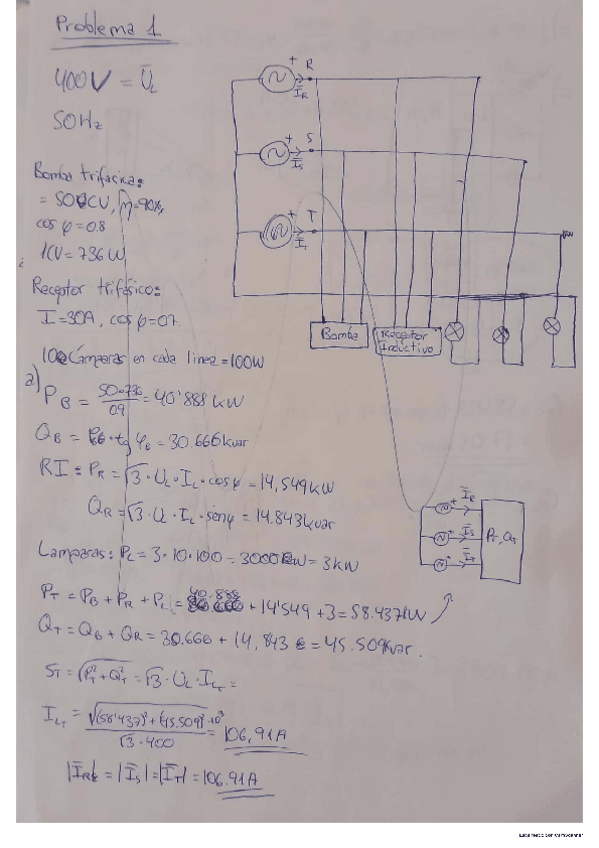 Problema 1
400V = U̅L
50Hz
Bomba trifásica:
= 50CV, η=90%,
cos φ=0.8
1CV = 736W
Receptor trifásico:
I=30A, cos φ=0.7
10 Lámparas en cada línea =100W
a)
P_B = 50·736/0.9 = 40'888 kW
Q_B = P_B · tg φ_B = 30.666 kvar
RI: P_R = √3 · U_L · I_L · cos φ = 14,549 kW
Q_R = √3 · U_L · I_L · sen φ = 14.843 kvar
Lamparas: P_L = 3·10·100 = 3000 W = 3 kW
P_T = P_B + P_R + P_L = 40.888 + 14'549 + 3 = 58.437 kW
Q_T = Q_B + Q_R = 30.666 + 14,843 = 45.509 kvar.
S_T = √(P_T² + Q_T²) = √3 · U_L · I_LT =
I_LT = √((58'437)² + (45.509)²) · 10³ / √3 · 400 = 106,91 A
|I̅R| = |I̅S| = |I̅T| = 106.91 A
+ R
I̅R
+ S
I̅S
+ T
I̅T
Bomba
Receptor
Inductivo
+ I̅R
+ I̅S
+ I̅T
P_T, Q_T